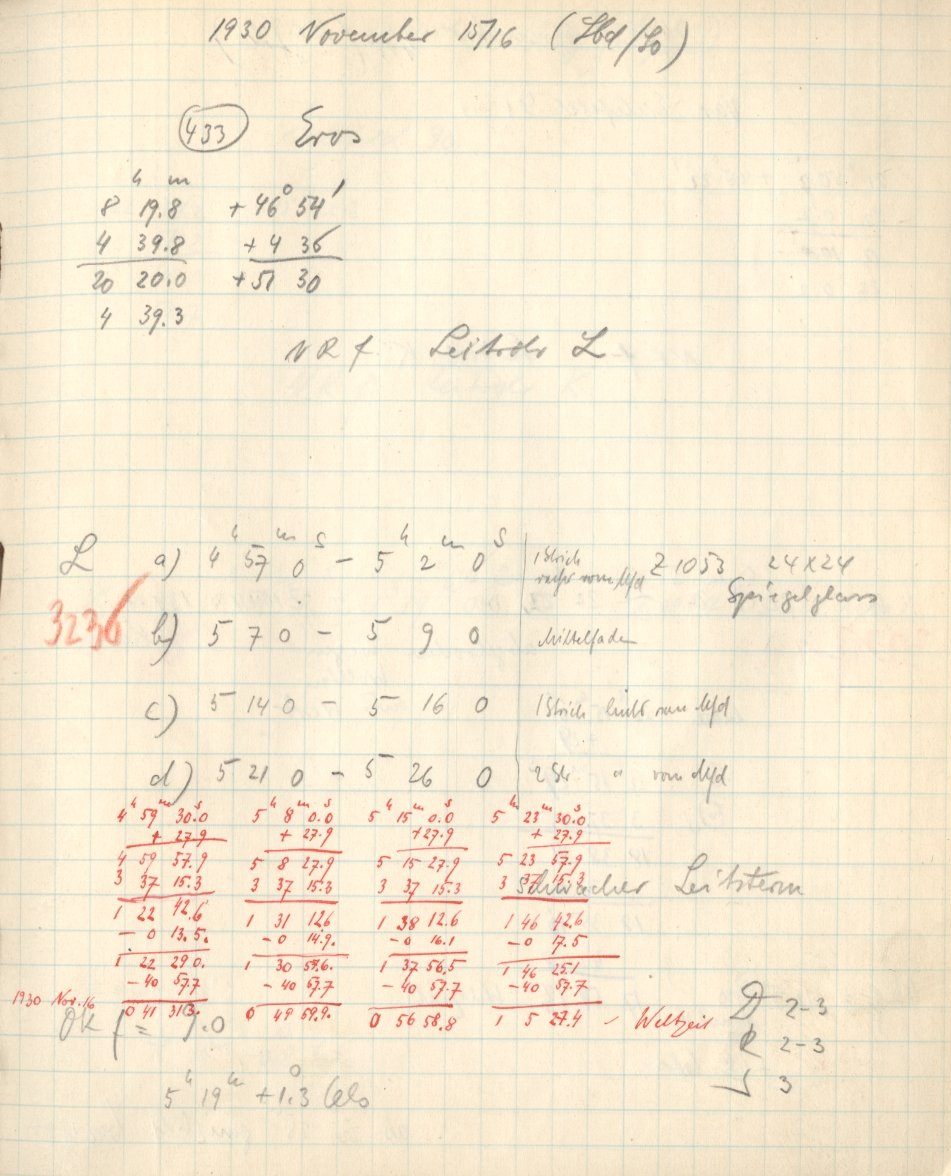 1930 November 15/16 (Sbd/So)
433 Eros
h m
8 19.8 + 46° 54'
4 39.8 + 4 36
20 20.0 + 51 30
4 39.3
NRf Leitrohr L
h m s h m s
L a) 4 57 0 – 5 2 0 1 Strich rechts vom Mfd Z 1053 24x24
Spiegelglas
3236 b) 5 7 0 – 5 9 0 Mittelfaden
c) 5 14 0 – 5 16 0 1 Strich links vom Mfd
d) 5 21 0 – 5 26 0 2 Str " vom Mfd
4h 59m 30.0s 5h 8m 0.0s 5h 15m 0.0s 5h 23m 30.0s
+ 27.9 + 27.9 + 27.9 + 27.9
4 59 57.9 5 8 27.9 5 15 27.9 5 23 57.9
3 37 15.3 3 37 15.3 3 37 15.3 3 37 15.3
Schwacher Leitstern
1 22 42.6 1 31 12.6 1 38 12.6 1 46 42.6
– 0 13.5 – 0 14.9 – 0 16.1 – 0 17.5
1 22 29.0 1 30 57.6 1 37 56.5 1 46 25.1
– 40 57.7 – 40 57.7 – 40 57.7 – 40 57.7
1930 Nov. 16 0 41 31.3 0 49 59.9 0 56 58.8 1 5 27.4 – Weltzeit
OK f = 7.0
D 2–3
R 2–3
S 3
5h 19m + 1.3° Cels